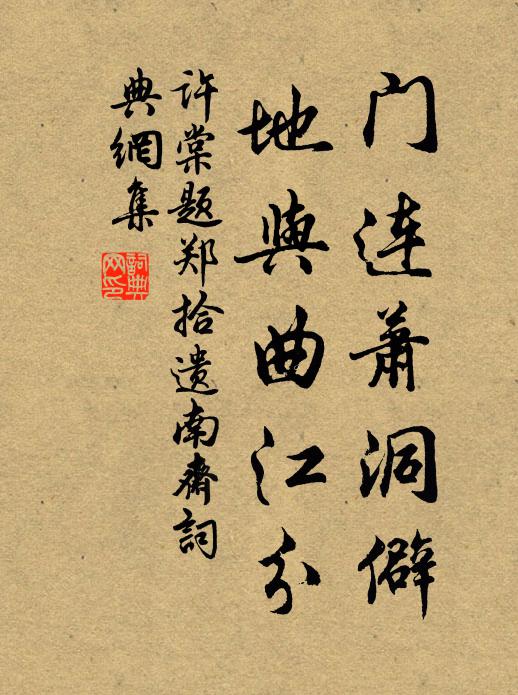 门连萧洞僻
地與曲江分
许棠题郑拾遗南斋詞
典網集
詞典
网印